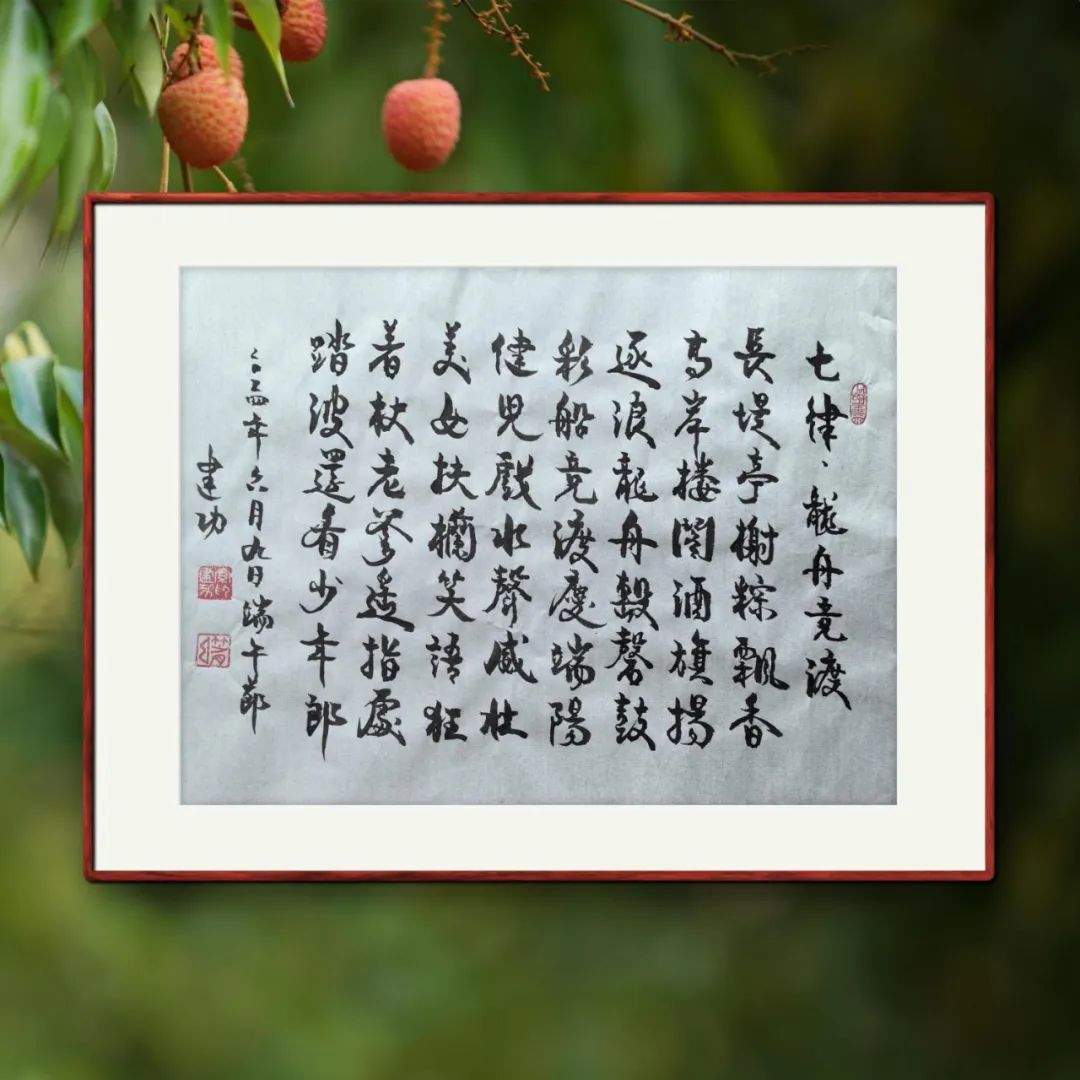 七律、龍舟竞渡
長堤亭榭粽飄香
高岸楼閣酒旗揚
逐浪龍舟磬鼓
彩船竞渡慶端陽
健児戲水聲威壮
美女扶欄笑語狂
着杖老爹遥指處
踏波還看少年郎
二〇二四年六月九日端午節
建功